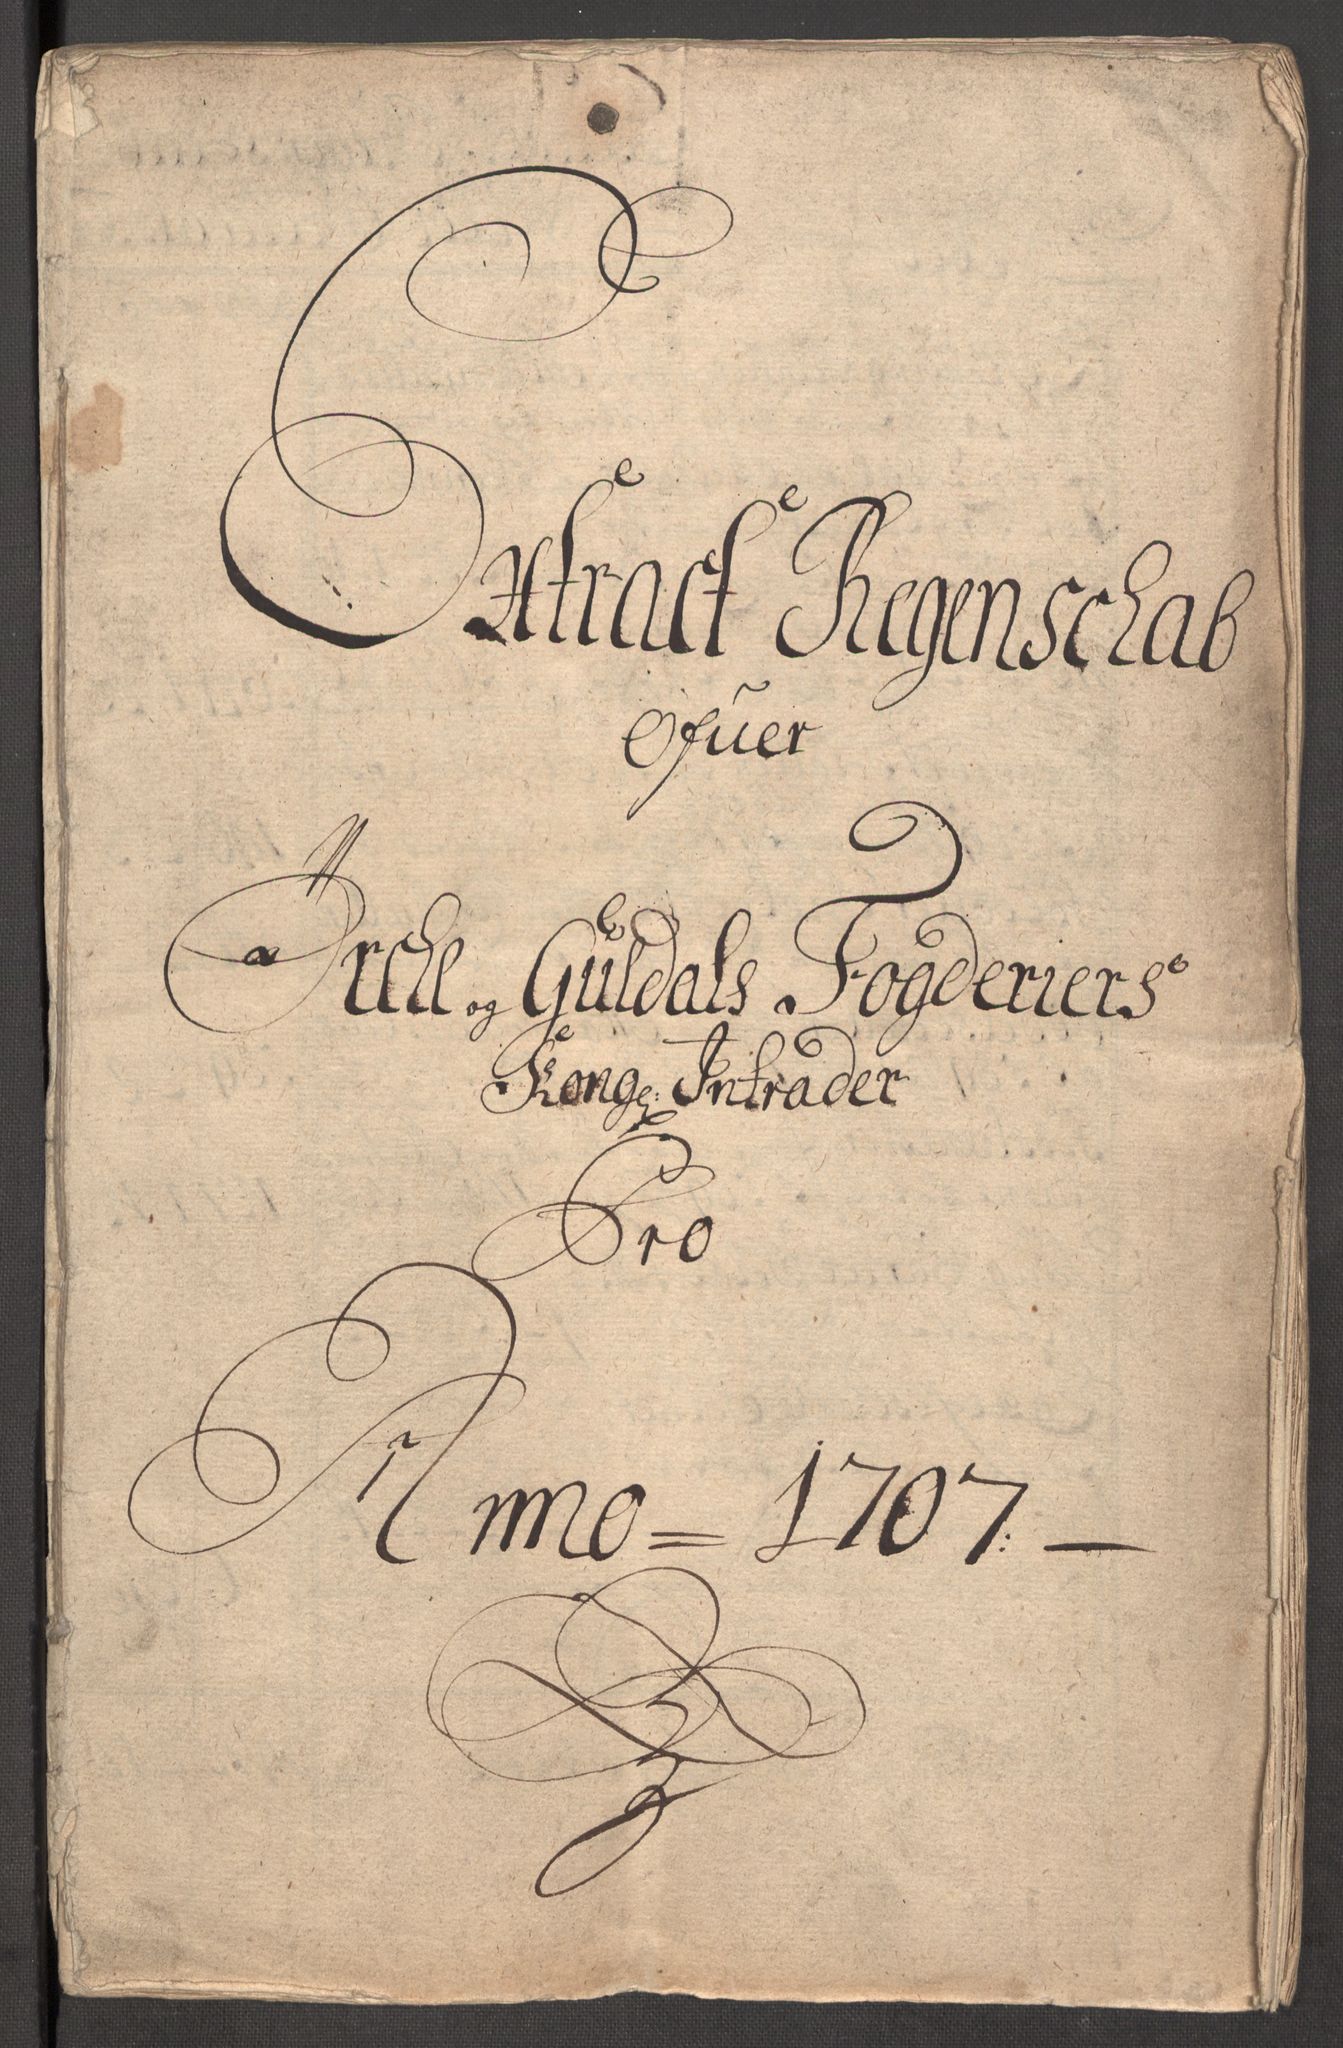 Extract Regenschab
Ofuer
Örche og Guldals Fogderiers
Kongl: Intrader
Pro
Anno = 1707: —